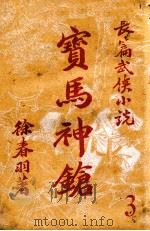 長篇武俠小說
寶馬神鎗
徐春羽著
3
www.youtupdf.com